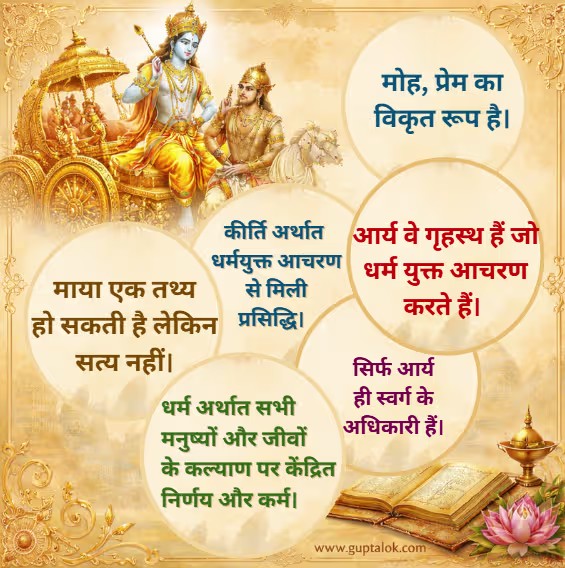 मोह, प्रेम का
विकृत रूप है।
कीर्ति अर्थात
धर्मयुक्त आचरण
से मिली
प्रसिद्धि।
आर्य वे गृहस्थ हैं जो
धर्म युक्त आचरण
करते हैं।
माया एक तथ्य
हो सकती है लेकिन
सत्य नहीं।
सिर्फ आर्य
ही स्वर्ग के
अधिकारी हैं।
धर्म अर्थात सभी
मनुष्यों और जीवों
के कल्याण पर केंद्रित
निर्णय और कर्म।
www.guptalok.com